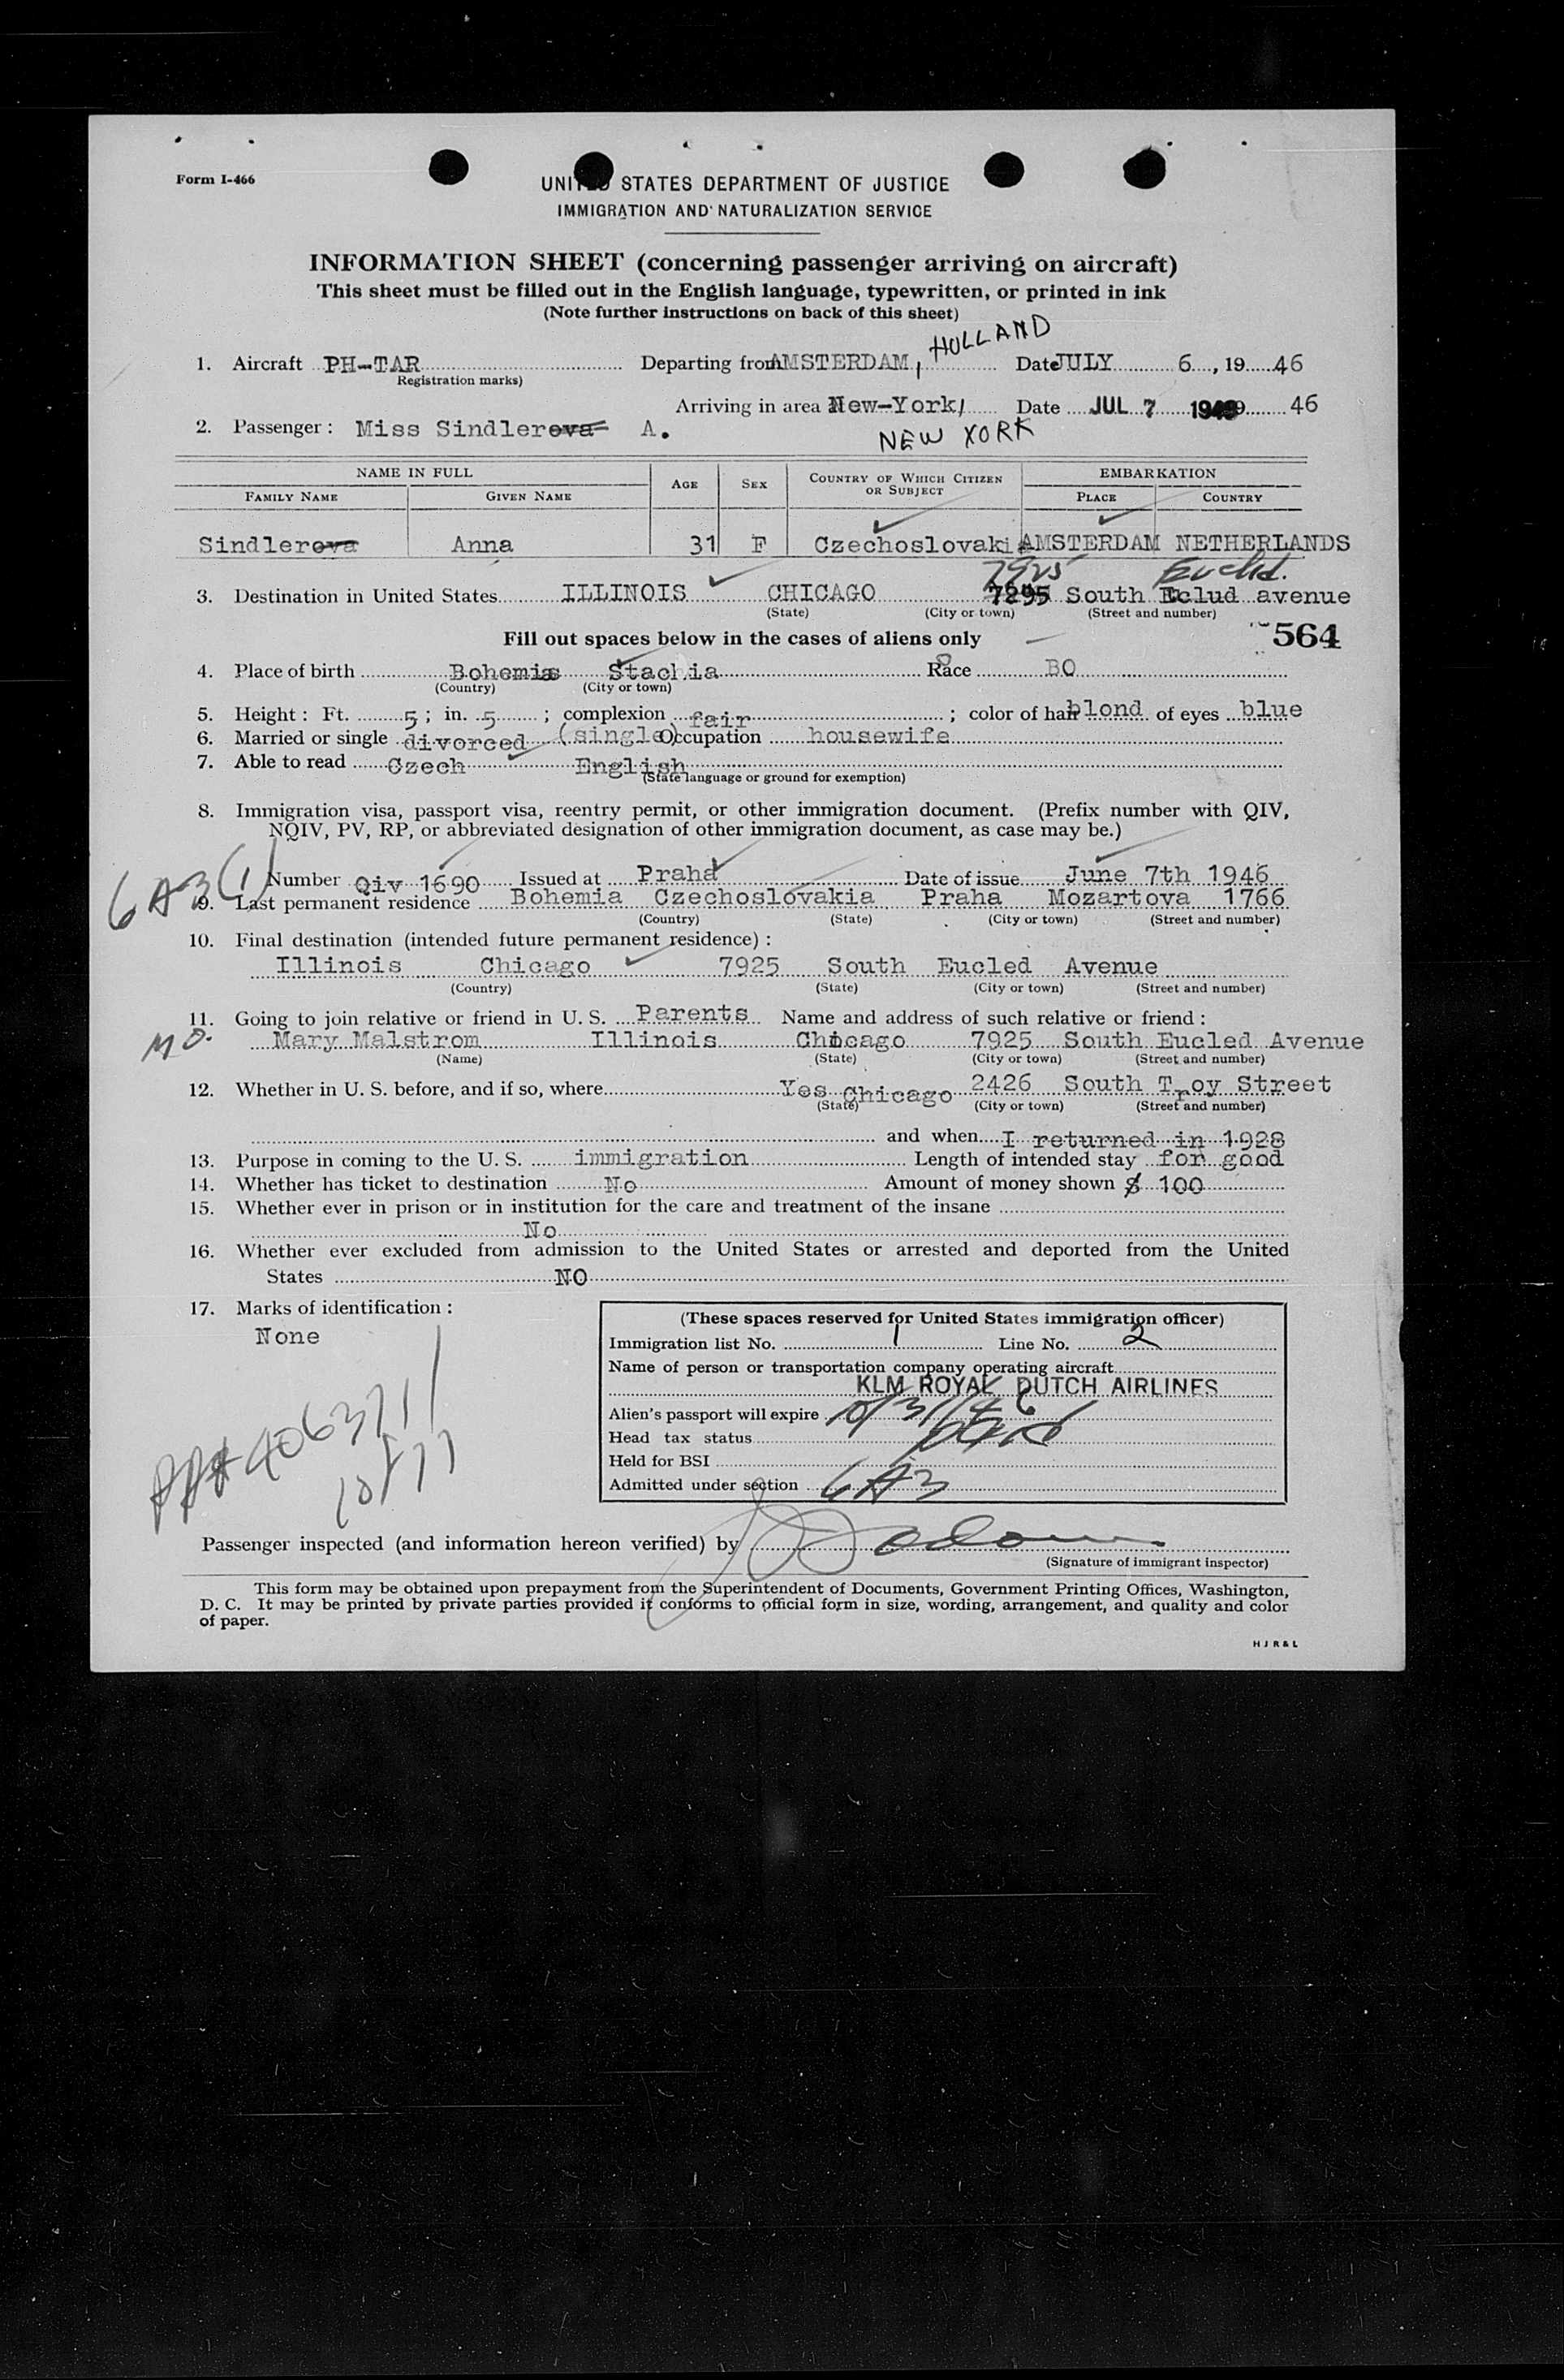 Form I-466
UNITED STATES DEPARTMENT OF JUSTICE
IMMIGRATION AND NATURALIZATION SERVICE
INFORMATION SHEET (concerning passenger arriving on aircraft)
This sheet must be filled out in the English language, typewritten, or printed in ink
(Note further instructions on back of this sheet)
HOLLAND
1. Aircraft PH-TAR Departing from AMSTERDAM, Date JULY 6, 19 46
(Registration marks)
Arriving in area New-York, Date JUL 7 46
2. Passenger: Miss Sindlerova A.
NEW YORK
NAME IN FULL AGE SEX COUNTRY OF WHICH CITIZEN OR SUBJECT EMBARKATION
FAMILY NAME GIVEN NAME PLACE COUNTRY
Sindlerova Anna 31 F Czechoslovaki AMSTERDAM NETHERLANDS
7925 Euclid.
3. Destination in United States ILLINOIS CHICAGO 7295 South Eclud avenue
(State) (City or town) (Street and number)
Fill out spaces below in the cases of aliens only
564
4. Place of birth Bohemia Race BO
(Country) (City or town)
5. Height: Ft. 5; in. 5; complexion fair; color of hair blond of eyes blue
6. Married or single divorced (single) Occupation housewife
7. Able to read Czech English
(State language or ground for exemption)
8. Immigration visa, passport visa, reentry permit, or other immigration document. (Prefix number with QIV,
NQIV, PV, RP, or abbreviated designation of other immigration document, as case may be.)
6A3(1) Number Qiv 1690 Issued at Praha Date of issue June 7th 1946
9. Last permanent residence Bohemia Czechoslovakia Praha Mozartova 1766
(Country) (State) (City or town) (Street and number)
10. Final destination (intended future permanent residence):
Illinois Chicago 7925 South Eucled Avenue
(Country) (State) (City or town) (Street and number)
11. Going to join relative or friend in U. S. Parents Name and address of such relative or friend:
MO. Mary Malstrom Illinois Chicago 7925 South Eucled Avenue
(Name) (State) (City or town) (Street and number)
12. Whether in U. S. before, and if so, where Yes Chicago 2426 South Troy Street
(State) (City or town) (Street and number)
and when I returned in 1928
13. Purpose in coming to the U. S. immigration Length of intended stay for good
14. Whether has ticket to destination No Amount of money shown $ 100
15. Whether ever in prison or in institution for the care and treatment of the insane
No
16. Whether ever excluded from admission to the United States or arrested and deported from the United
States NO
17. Marks of identification:
None
(These spaces reserved for United States immigration officer)
Immigration list No. 1 Line No. 2
Name of person or transportation company operating aircraft
KLM ROYAL DUTCH AIRLINES
Alien's passport will expire 10/31/46
Head tax status
Held for BSI
Admitted under section 6A3
Passenger inspected (and information hereon verified) by
(Signature of immigrant inspector)
This form may be obtained upon prepayment from the Superintendent of Documents, Government Printing Offices, Washington,
D. C. It may be printed by private parties provided it conforms to official form in size, wording, arrangement, and quality and color
of paper.
H J R & L